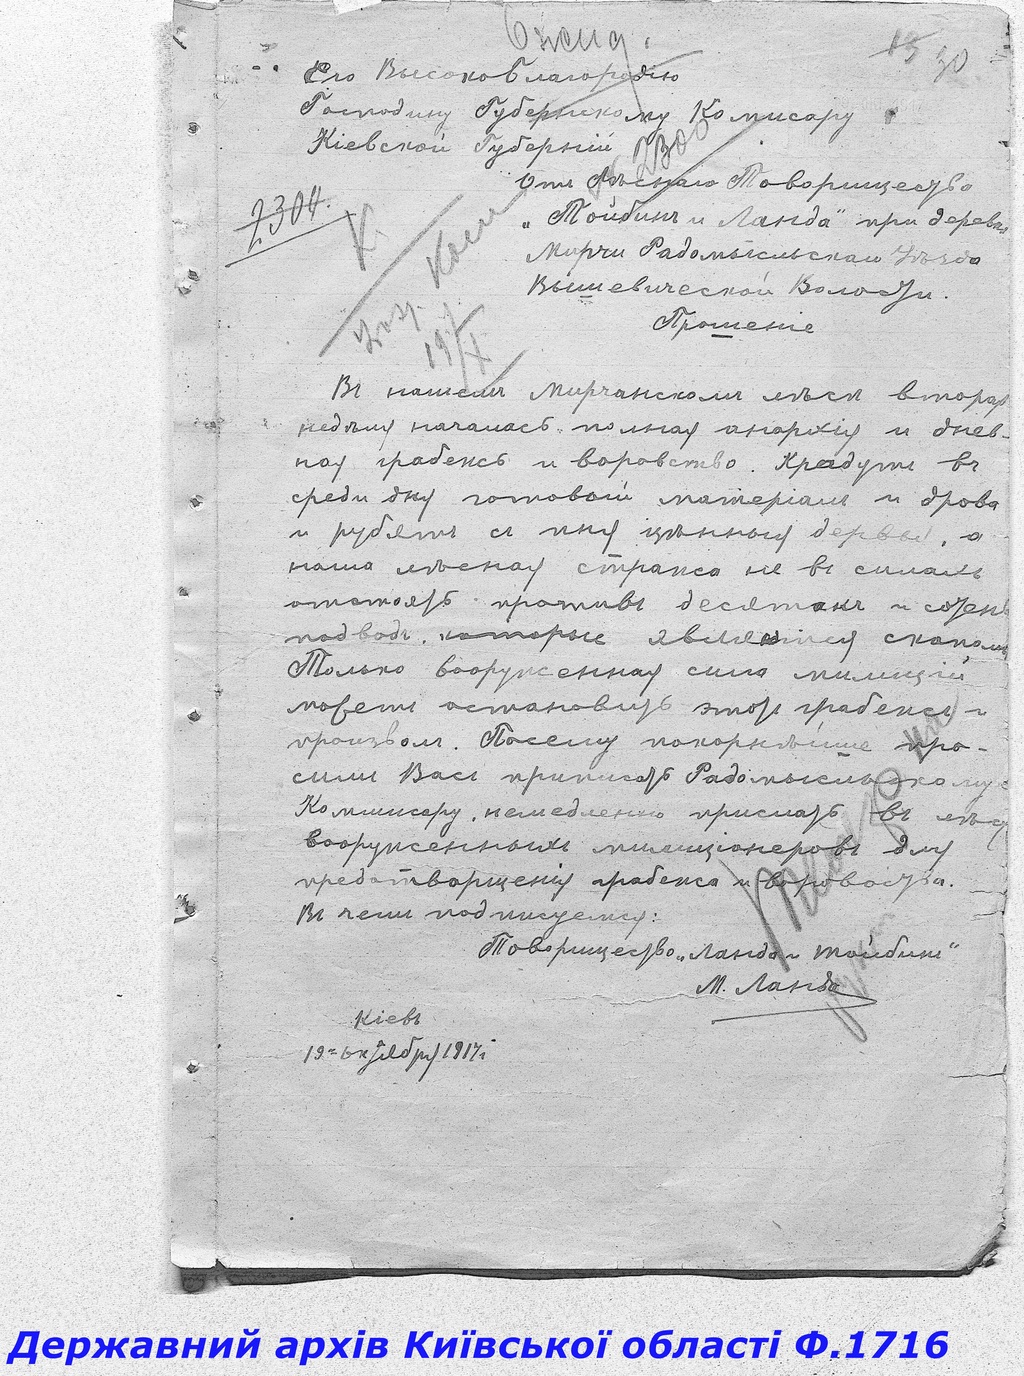 13 30
Его Высокоблагородію
Господину Губернскому Комисару
Кіевской Губерній
2300
2304.
Отъ Лѣснаго Товарищество
„Тойбинъ и Ланда" при деревни
Мирчи Радомысльскаго Уѣзда
Вышевической Волости.
К.
19 17/X
Прошеніе
Въ нашемъ Мирчанскомъ лѣсѣ вторая
недѣля началась полная анархія и днев-
ная грабежъ и воровство. Крадутъ въ
среди дня готовый матеріалъ и дрова
и рубятъ съ пня цѣнныя деревьі, а
наша лѣсная стража не въ силахъ
отстоять противъ десятакъ и сотень
подводъ, которые являются скопомъ
Только вооруженная сила милицій
можетъ остановить этотъ грабежъ и
произволъ. Посему покорнѣйше про-
сили Васъ приписать Радомысльскому
Коммисару, немедленно прислать въ лѣсъ
вооруженныхъ милиціонеровъ для
предотворщенія грабежа и воровоства.
Въ чемъ подписуемся:
Товарищество „Ланда и Тойбинъ"
М. Ланда
Кіевъ
19го октября 1917 г.
Державний архів Київської області Ф.1716